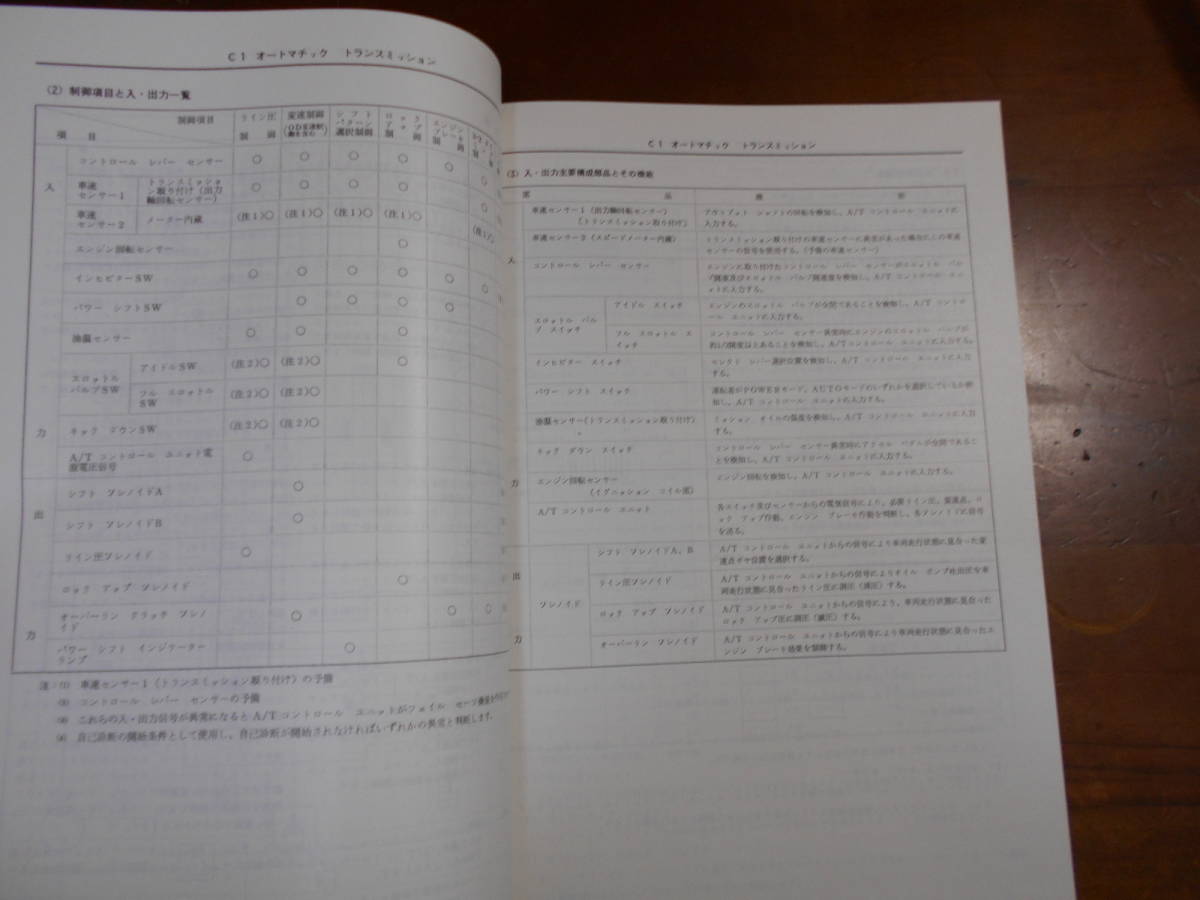 C1 オートマチック トランスミッション
(2) 制御項目と入・出力一覧
制御項目
項 目
ライン圧制御
変速制御
シフトパターン選択制御
入
力
コントロール レバー センサー ○ ○ ○ ○ ○ ○
車速センサー1 トランスミッション取り付け(出力軸回転センサー) ○ ○ ○ ○ ○
車速センサー2 メーター内蔵 (注1)○ (注1)○ (注1)○ (注1)○ (注1)○
エンジン回転センサー ○
インヒビターSW ○ ○ ○ ○ ○ ○
パワー シフトSW ○ ○ ○ ○
油温センサー ○ ○ ○
スロットルバルブSW
アイドルSW (注2)○ (注2)○ ○
フル スロットルSW (注2)○ (注2)○
キック ダウンSW (注2)○ (注2)○
A/T コントロール ユニット電源電圧信号 ○
出
力
シフト ソレノイドA ○
シフト ソレノイドB ○
ライン圧ソレノイド ○
ロック アップ ソレノイド ○
オーバーラン クラッチ ソレノイド ○ ○ ○
パワー シフト インジケーター ランプ ○
注:(1) 車速センサー1(トランスミッション取り付け)の予備
(2) コントロール レバー センサーの予備
これらの入・出力信号が異常になるとA/Tコントロール ユニットがフェイル セーフ
自己診断の開始条件として使用し、自己診断が開始されなければいずれかの異常と判断します。
C1 オートマチック トランスミッション
(3) 入・出力主要構成部品とその機能
部 品 機 能
入
力
車速センサー1(出力軸回転センサー)
(トランスミッション取り付け)
アウトプット シャフトの回転を検知し、A/T コントロール ユニットに入力する。
車速センサー2(スピードメーター内蔵)
トランスミッション取り付けの車速センサーに異常があった場合にこの車速センサーの信号を使用する。(予備の車速センサー)
コントロール レバー センサー
エンジンに取り付けたコントロール レバー センサーがスロットル バルブ開度及びスロットル バルブ開速度を検知し、A/T コントロール ユニットに入力する。
スロットル バルブ スイッチ
アイドル スイッチ
エンジンのスロットル バルブが全閉であることを検知し、A/T コントロール ユニットに入力する。
フル スロットル スイッチ
コントロール レバー センサー異常時にエンジンのスロットル バルブが約1/2開度以上あることを検知し、A/T コントロール ユニットに入力する。
インヒビター スイッチ
セレクト レバー選択位置を検知し、A/T コントロール ユニットに入力する。
パワー シフト スイッチ
運転者がPOWERモード、AUTOモードのいずれかを選択しているか検知し、A/T コントロール ユニットに入力する。
油温センサー(トランスミッション取り付け)
ミッション オイルの温度を検知し、A/T コントロール ユニットに入力する。
キック ダウン スイッチ
コントロール レバー センサー異常時にアクセル ペダルが全開であることを検知し、A/T コントロール ユニットに入力する。
エンジン回転センサー
(イグニッション コイル部)
エンジン回転を検知し、A/T コントロール ユニットに入力する。
A/T コントロール ユニット
各スイッチ及びセンサーからの電気信号により、必要ライン圧、変速点、ロック アップ作動、エンジン ブレーキ作動を判断し、各ソレノイドに信号を送る。
出
力
ソレノイド
シフト ソレノイドA、B
A/T コントロール ユニットからの信号により車両走行状態に見合った変速点ギヤ位置を選択する。
ライン圧ソレノイド
A/T コントロール ユニットからの信号によりオイル ポンプ吐出圧を車両走行状態に見合ったライン圧に調圧(減圧)する。
ロック アップ ソレノイド
A/T コントロール ユニットからの信号により、車両走行状態に見合ったロック アップ圧に調圧(減圧)する。
オーバーラン ソレノイド
A/T コントロール ユニットからの信号により車両走行状態に見合ったエンジン ブレーキ効果を制御する。